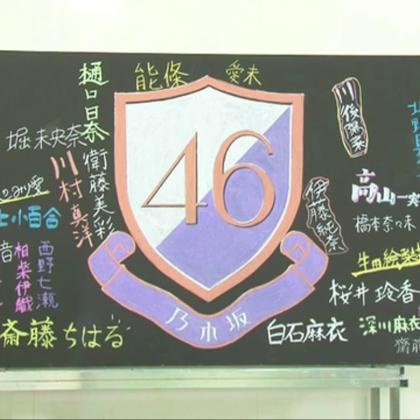 樋口日奈
能條
愛未
川後陽菜
堀 未央奈
川村真洋
衛藤美彩
46
伊藤純奈
高山一実
橋本奈々未
生田絵梨
小百合
相楽伊織
西野七瀬
桜井玲香
乃木坂
斎藤ちはる
白石麻衣
深川麻衣